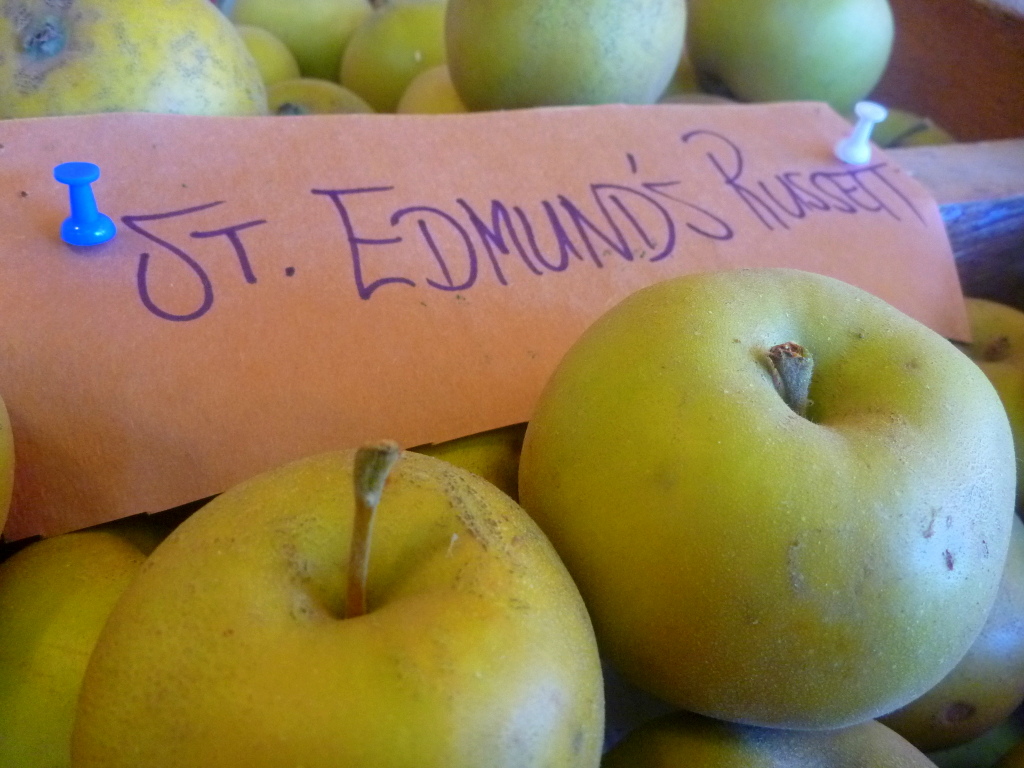 ST. EDMUND'S RUSSETT